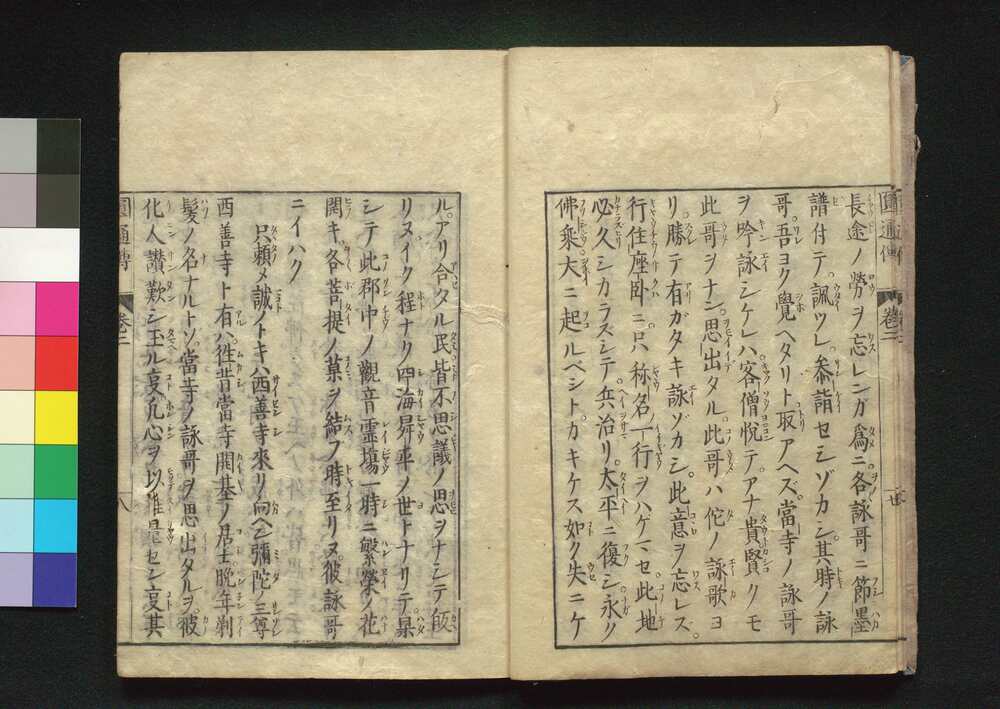 長途ノ勞ヲ忘レンガ爲ニ各詠哥ニ節墨
譜付テ諷ツレ。參詣セシゾカシ其時ノ詠
哥。吾ヨク覺ヘタリト取アヘズ。當寺ノ詠哥
ヲ吟詠シケレハ客僧悦テ。アナ貴賢クモ
此哥ヲナン。思出タル。此哥ハ佗ノ詠歌ヨ
リ。勝テ有ガタキ詠ゾカシ。此意ヲ忘レス。
行住座卧ニ。只称名一行ヲハケマセ此地
必久シカラスシテ。兵治リ。太平ニ復シ。永ク
佛乗大ニ起ルベシト。カキケス如ク失ニケ
圓通傳
卷三
廿
ル。アリ合タル民皆不思議ノ思ヲナシテ飯
リヌイク程ナク四海昇平ノ世トナリテ。杲
シテ此郡中ノ觀音靈塲一時ニ繁榮ノ花
開キ各菩提ノ菓ヲ結フ時至リヌ。彼詠哥
ニイハク
只頼メ誠ノトキハ西善寺來リ向ヘン彌陀ノ三尊
西善寺ト有ハ徃昔當寺開基ノ居士晚年剃
髮ノ名ナルトソ。當寺ノ詠哥ヲ思出タルヲ。彼
化人讃歎シ玉ル㕝凡心ヲ以推量セシ㕝其
圓通傳
卷三
八